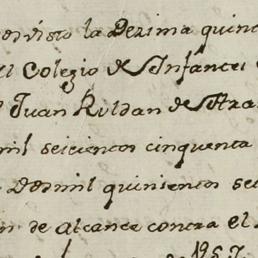 visto la Dezima quinc
el Colegio de Infantes
Juan Roldan de
mil seiscientos cinquenta
Dosmil quinientos sei
de alcance contra el